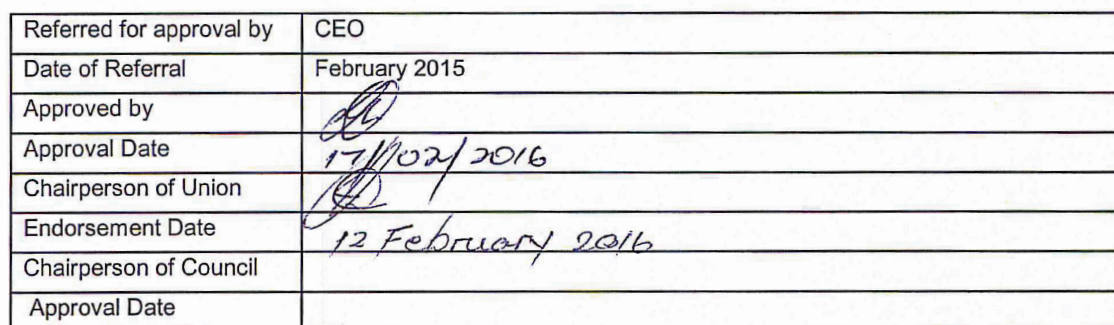 Referred for approval by CEO
Date of Referral February 2015
Approved by
Approval Date 17/02/2016
Chairperson of Union
Endorsement Date 12 February 2016
Chairperson of Council
Approval Date